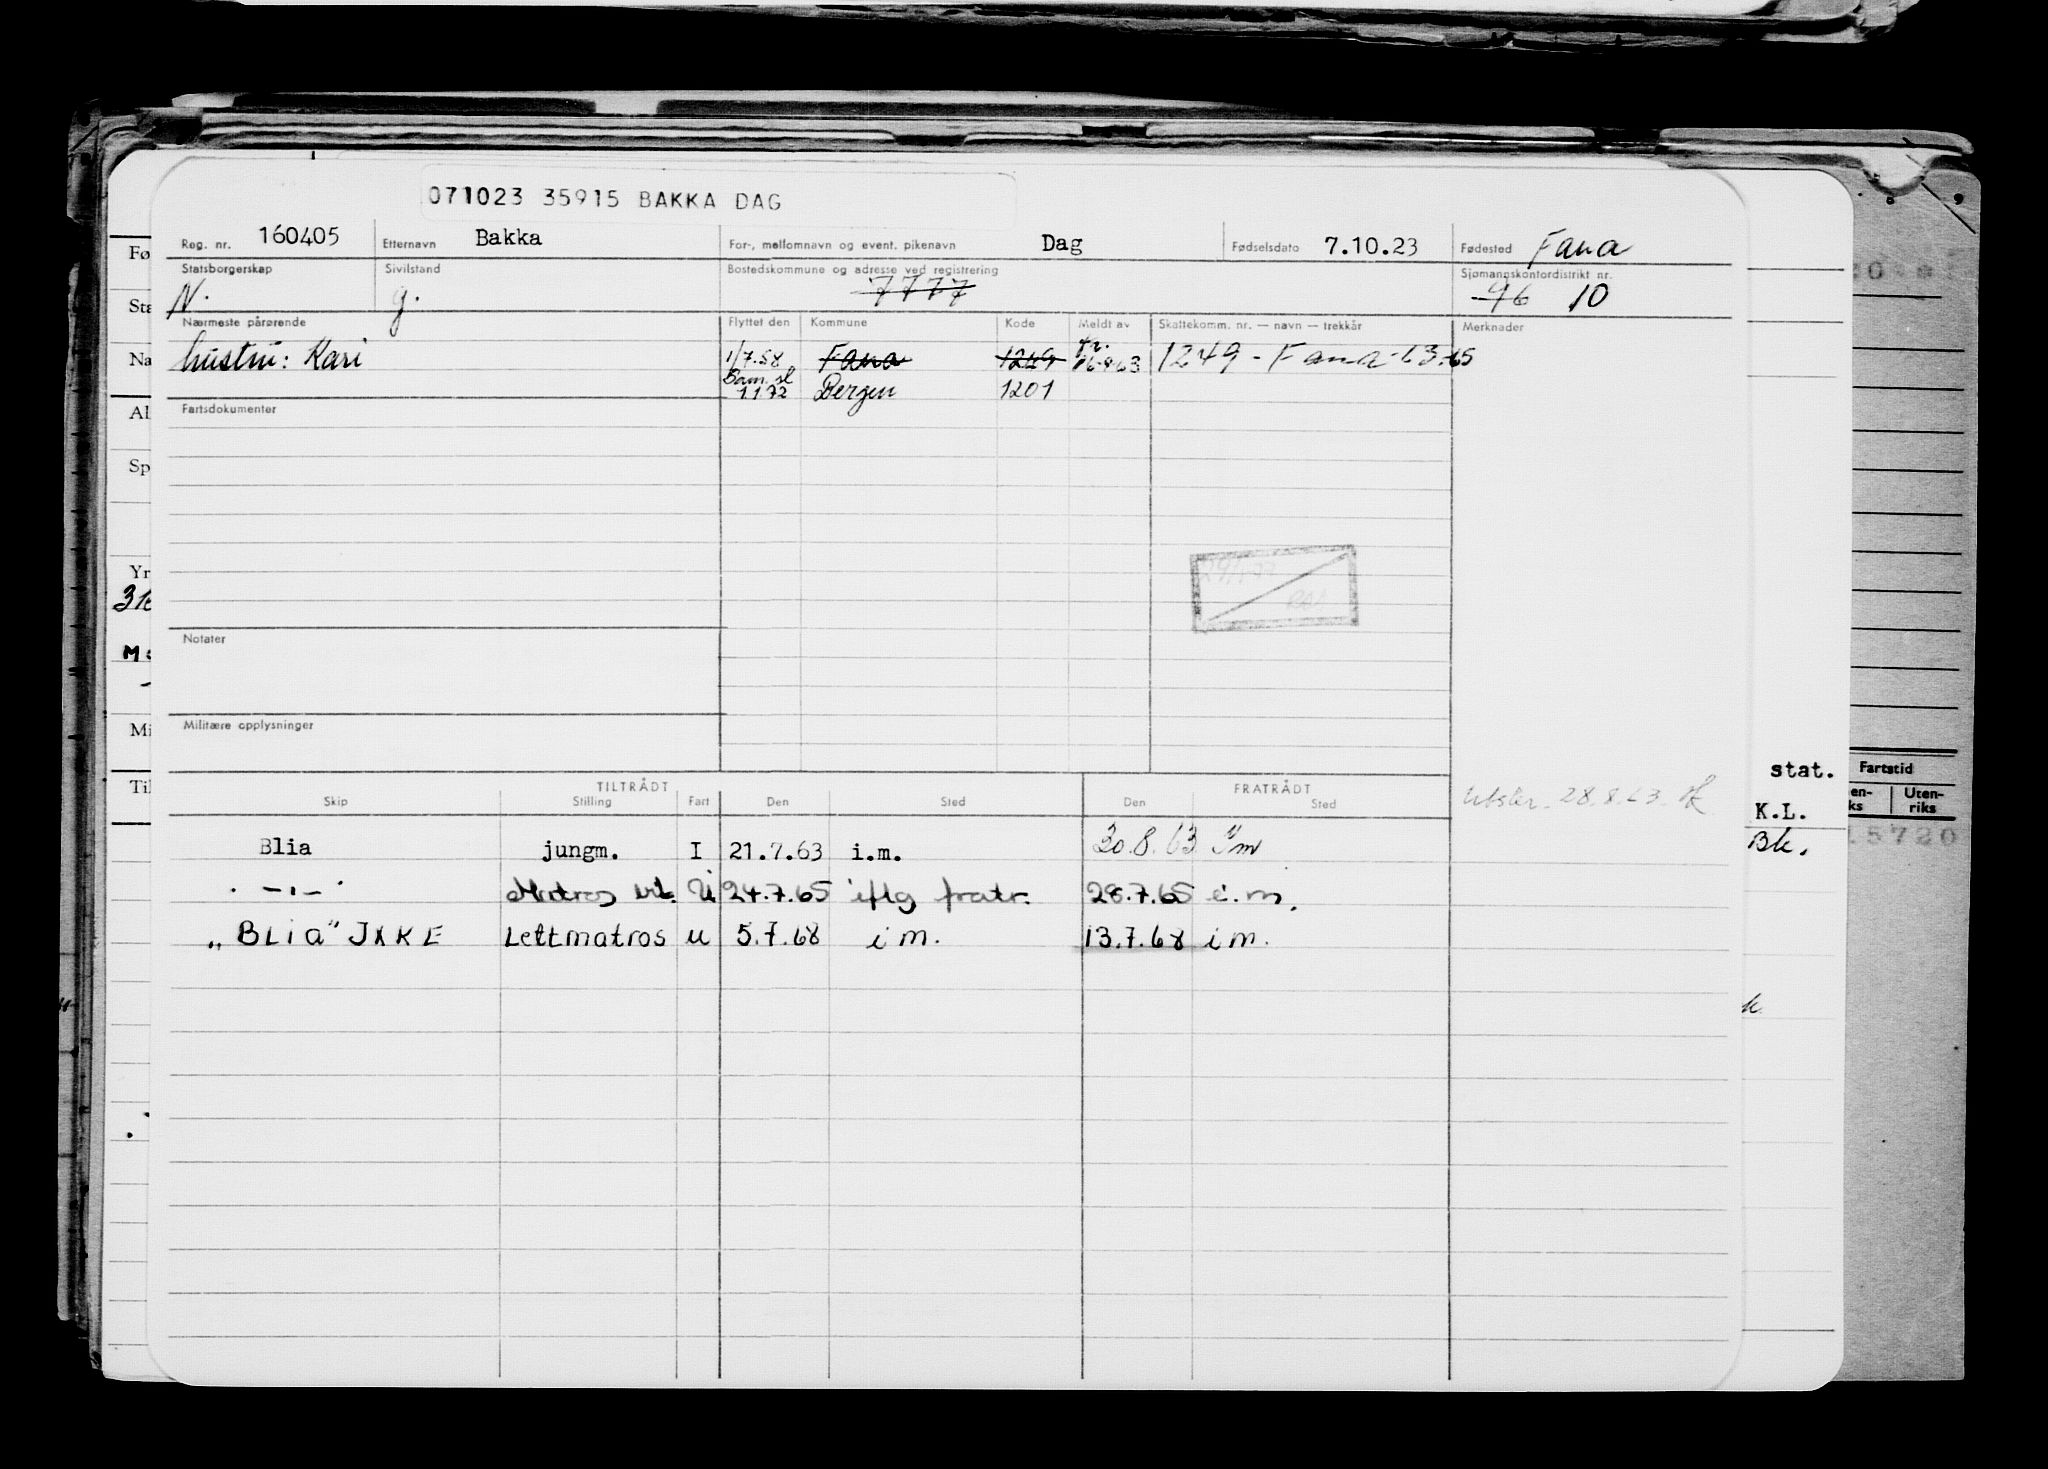 071023 35915 BAKKA DAG
Reg. nr. 160405 Etternavn Bakka For-, mellomnavn og event. pikenavn Dag Fødselsdato 7.10.23 Fødested Fana
Statsborgerskap N. Sivilstand g. Bostedskommune og adresse ved registrering 7777 Sjømannskontordistrikt nr. 46 10
Nærmeste pårørende Flyttet den Kommune Kode Meldt av Skattekomm. nr. — navn — trekkår Merknader
hustru: Kari 1/7.58 Fana 1249 fr. 16-8-63 1249 - Fana - 63.-65
Sam. sl 1.1.72 Bergen 1201
Fartsdokumenter
Notater
Militære opplysninger
TILTRÅDT FRATRÅDT
Skip Stilling Fart Den Sted Den Sted
28.8.63
Blia jungm. I 21.7.63 i.m. 30.8.63 Im
- " - Matros U 24.7.65 iflg fratr. 28.7.65 i.m.
„BLia" JXKE Lettmatros u 5.7.68 i m. 13.7.68 i m.
Fø
Sta
Na
Al
Sp
Yr
M
Mi
Til
stat.
K.L.
Bk.
Fartstid
en-ks Uten-riks
5720
8 9